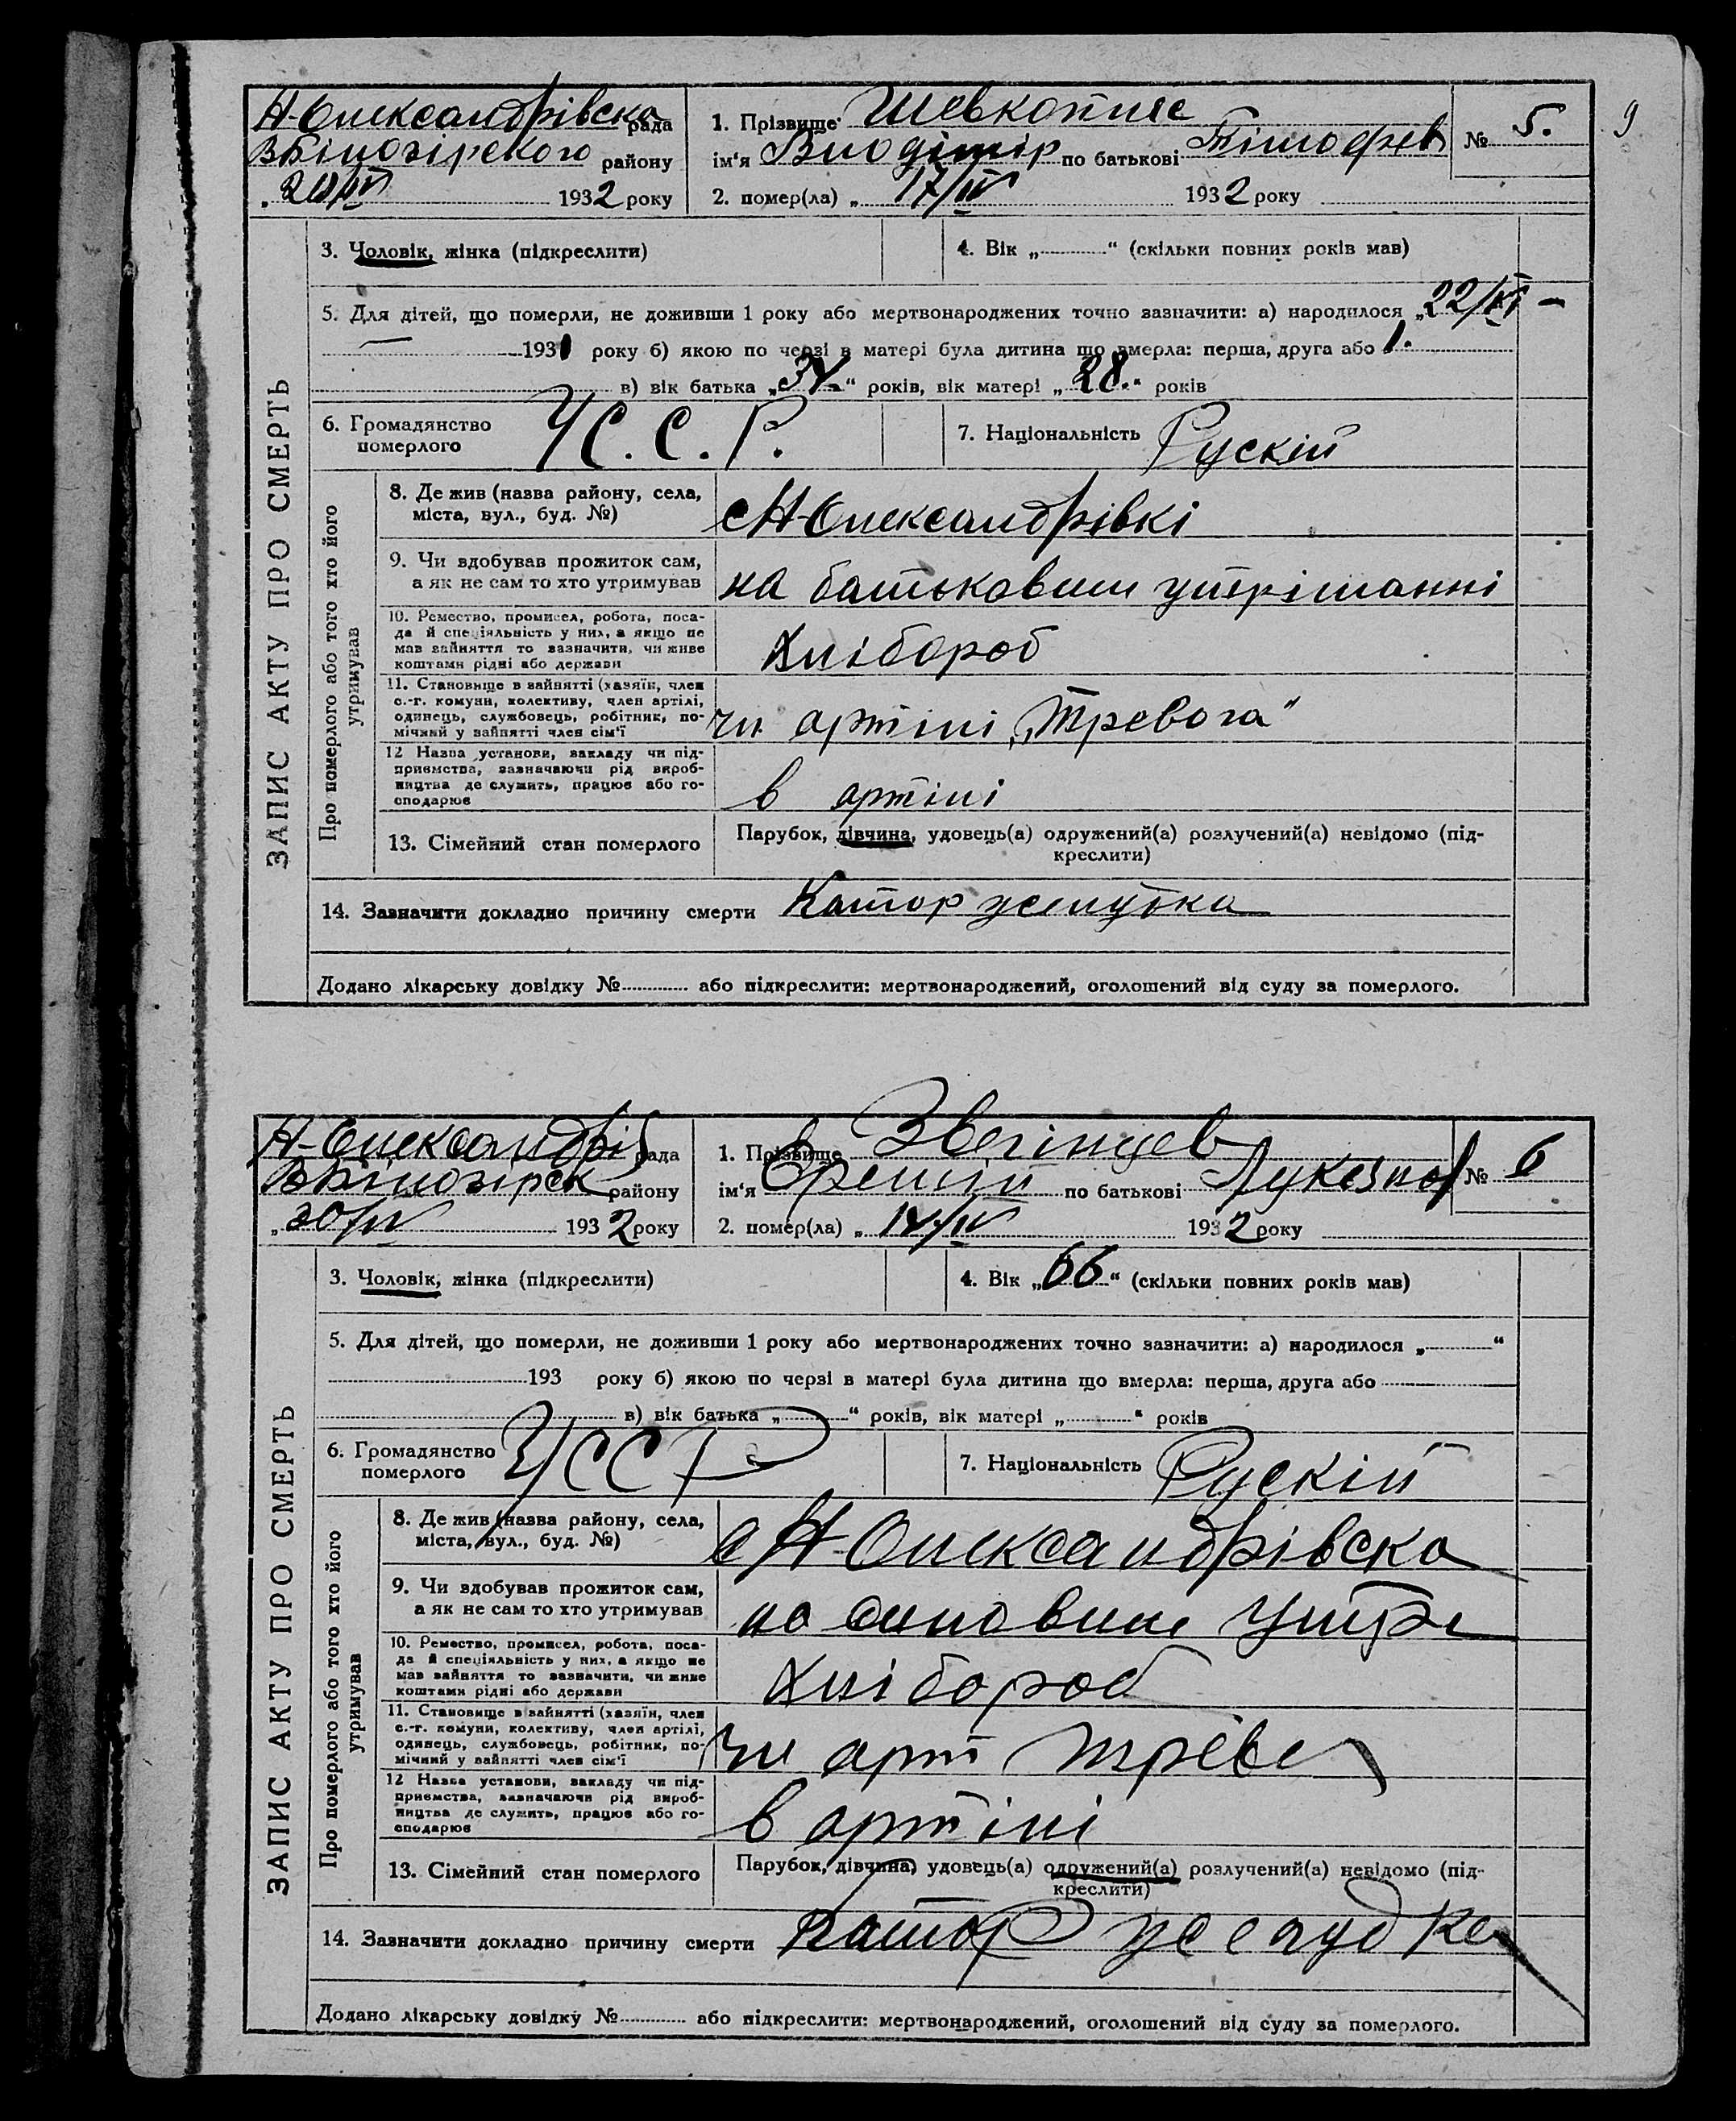 Н-Олександрівська рада
В Білозірского району
„20/IV 1932 року
1. Прізвище Шевкопляс
ім'я Владімір по батькові Тімофєев
2. помер(ла) „ 17/IV 1932 року
№ 5.
9
ЗАПИС АКТУ ПРО СМЕРТЬ
3. Чоловік, жінка (підкреслити)
4. Вік „ “ (скільки повних років мав)
5. Для дітей, що померли, не доживши 1 року або мертвонароджених точно зазначити: а) народилося „22/XI –
— 1931 року б) якою по черзі в матері була дитина що вмерла: перша, друга або 1.
в) вік батька „34“ років, вік матері „28.“ років
6. Громадянство
померлого
У С. С. Р.
7. Національність Рускій
Про померлого або того хто його
утримував
8. Де жив (назва району, села,
міста, вул., буд. №)
с Н-Олександрівкі
9. Чи вдобував прожиток сам,
а як не сам то хто утримував
на батьковим утріманні
10. Ремество, промисел, робота, поса-
да й спеціяльність у них, а якщо не
мав вайняття то зазначити, чи живе
коштами рідні або держави
Хлібороб
11. Становище в вайнятті (хазяїн, член
с.-г. комуни, колективу, член артілі,
одинець, службовець, робітник, по-
мічний у вайнятті член сім'ї
чл. артілі „Тревога“
12 Назва установи, закладу чи під-
приємства, вазначаючи рід вироб-
ництва де служить, працює або го-
сподарює
в артілі
13. Сімейний стан померлого
Парубок, дівчина, удовець(а) одружений(а) розлучений(а) невідомо (під-
креслити)
14. Зазначити докладно причину смерти Катор желудка
Додано лікарську довідку № або підкреслити: мертвонароджений, оголошений від суду за померлого.
Н-Олександрів рада
В Білозірск району
„30/IV 1932 року
1. Прізвище Звегінцев
ім'я по батькові
2. помер(ла) „ 14/IV 1932 року
№ 6
ЗАПИС АКТУ ПРО СМЕРТЬ
3. Чоловік, жінка (підкреслити)
4. Вік „66“ (скільки повних років мав)
5. Для дітей, що померли, не доживши 1 року або мертвонароджених точно зазначити: а) народилося „ “
193 року б) якою по черзі в матері була дитина що вмерла: перша, друга або
в) вік батька „ “ років, вік матері „ “ років
6. Громадянство
померлого
УССР
7. Національність Рускій
Про померлого або того хто його
утримував
8. Де жив (назва району, села,
міста, вул., буд. №)
с Н-Олександрівска
9. Чи вдобував прожиток сам,
а як не сам то хто утримував
на синовим утре
10. Ремество, промисел, робота, поса-
да й спеціяльність у них, а якщо не
мав вайняття то вазначити, чи живе
коштами рідні або держави
Хлібороб
11. Становище в вайнятті (хазяїн, член
с.-г. комуни, колективу, член артілі,
одинець, службовець, робітник, по-
мічний у вайнятті член сім'ї
чл арт треве
12 Назва установи, вакладу чи під-
приємства, вазначаючи рід вироб-
ництва де служить, працює або го-
сподарює
в артілі
13. Сімейний стан померлого
Парубок, дівчина, удовець(а) одружений(а) розлучений(а) невідомо (під-
креслити)
14. Зазначити докладно причину смерти Катор желудка
Додано лікарську довідку № або підкреслити: мертвонароджений, оголошений від суду за померлого.